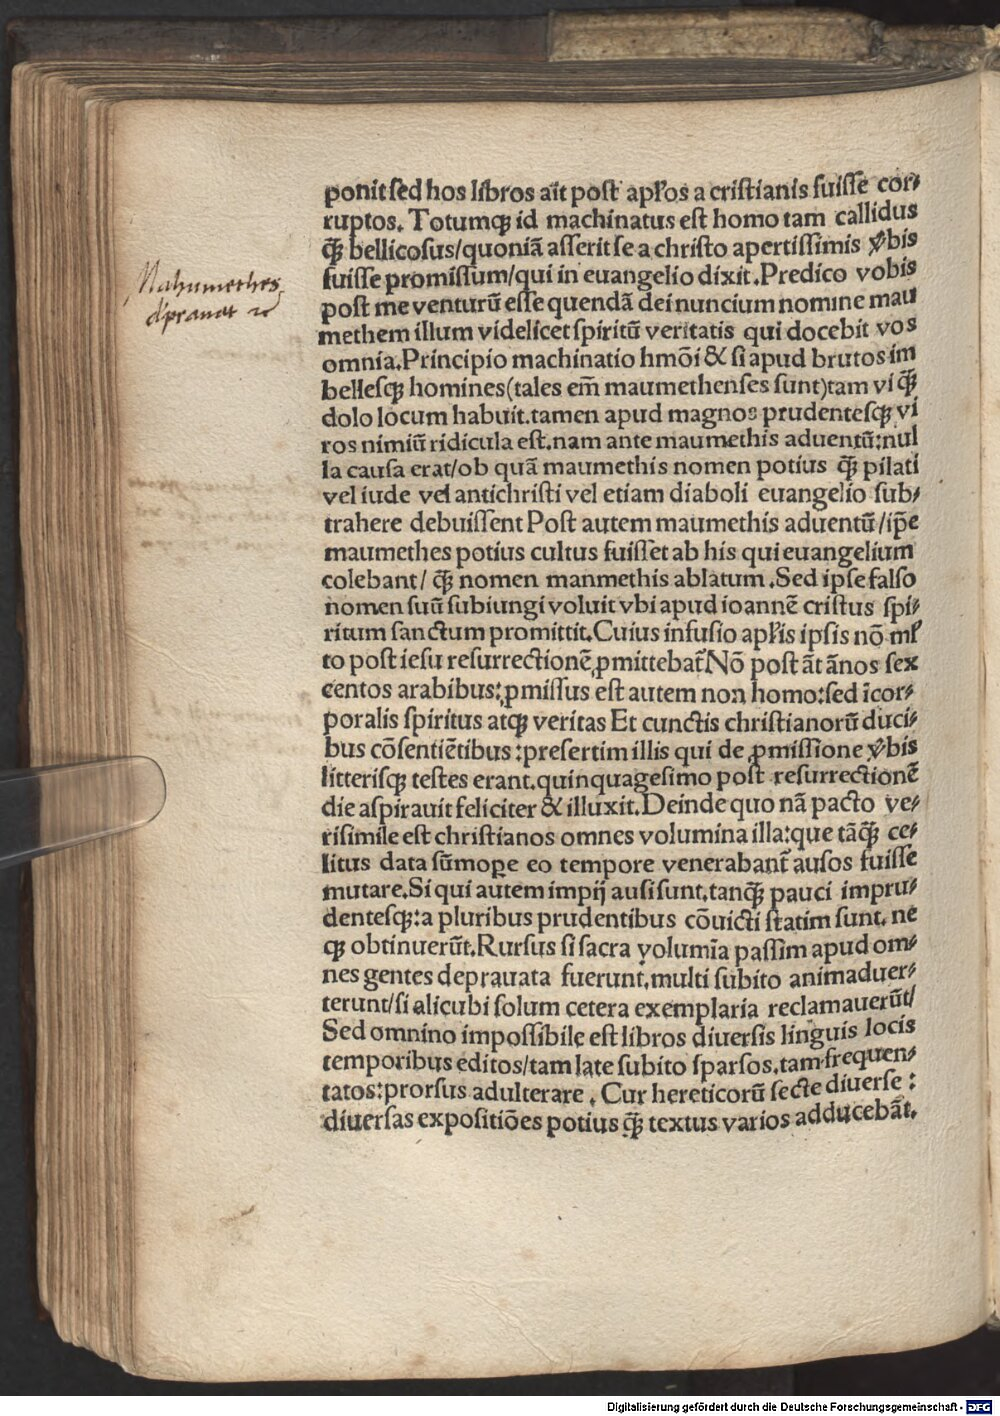 ponit sed hos libros aīt post apłos a cristianis fuisse cor⸗
ruptos. Totumqꝫ id machinatus est homo tam callidus
q̃ꝫ bellicosus/quoniā asserit se a christo apertissimis v̾bis
fuisse promissum/qui in euangelio dixit. Predico vobis
post me venturū esse quendā dei nuncium nomine mau
methem illum videlicet spiritū veritatis qui docebit vos
omnia. Principio machinatio hmōi & si apud brutos im
bellesqꝫ homines(tales em̄ maumethenses sunt)tam vi q̃ꝫ
dolo locum habuit. tamen apud magnos prudentesqꝫ vi
ros nimiū ridicula est. nam ante maumethis aduentū:nul
la causa erat/ob quā maumethis nomen potius q̃ꝫ pilati
vel iude vel antichristi vel etiam diaboli euangelio sub⸗
trahere debuissent Post autem maumethis aduentū/ip̄e
maumethes potius cultus fuisset ab his qui euangelium
colebant/ q̃ꝫ nomen manmethis ablatum. Sed ipse falso
nomen suū subiungi voluit vbi apud ioannē cristus spi⸗
ritum sanctum promittit. Cuius infusio apłis ipsis nō mł
to post iesu resurrectionē ꝓmittebat᷑ Nō post āt ānos sex
centos arabibus: ꝓmissus est autem non homo:sed īcor⸗
poralis spiritus atqꝫ veritas Et cunctis christianorū duci⸗
bus cōsentiētibus:presertim illis qui de ꝓmissione v̾bis
litterisqꝫ testes erant. quinquagesimo post resurrectionē
die aspirauit feliciter & illuxit. Deinde quo nā pacto ve⸗
risimile est christianos omnes volumina illa:que tāq̃ꝫ ce⸗
litus data sūmoꝑe eo tempore venerabant᷑ ausos fuisse
mutare. Si qui autem impij ausi sunt. tanq̃ꝫ pauci impru⸗
dentesqꝫ:a pluribus prudentibus cōuicti statim sunt. ne
qꝫ obtinuerūt. Rursus si sacra volumīa passim apud om⸗
nes gentes deprauata fuerunt. multi subito animaduer⸗
terunt/si alicubi solum cetera exemplaria reclamauerūt/
Sed omnino impossibile est libros diuersis linguis locis
temporibus editos/tam late subito sparsos. tam frequen⸗
tatos:prorsus adulterare. Cur hereticorū secte diuerse:
diuersas expositiōes potius q̃ꝫ textus varios adducebāt.
Mahumethes
Digitalisierung gefördert durch die Deutsche Forschungsgemeinschaft - DFG